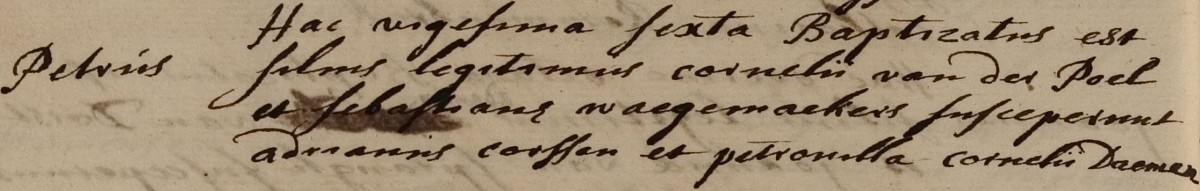 Hac vigesima sexta Baptizatus est
Petrus filius legitimus cornelii van der Poel
et sebastianę waegemaekers susceperunt
adrianus corssen et petronilla cornelii Daemen